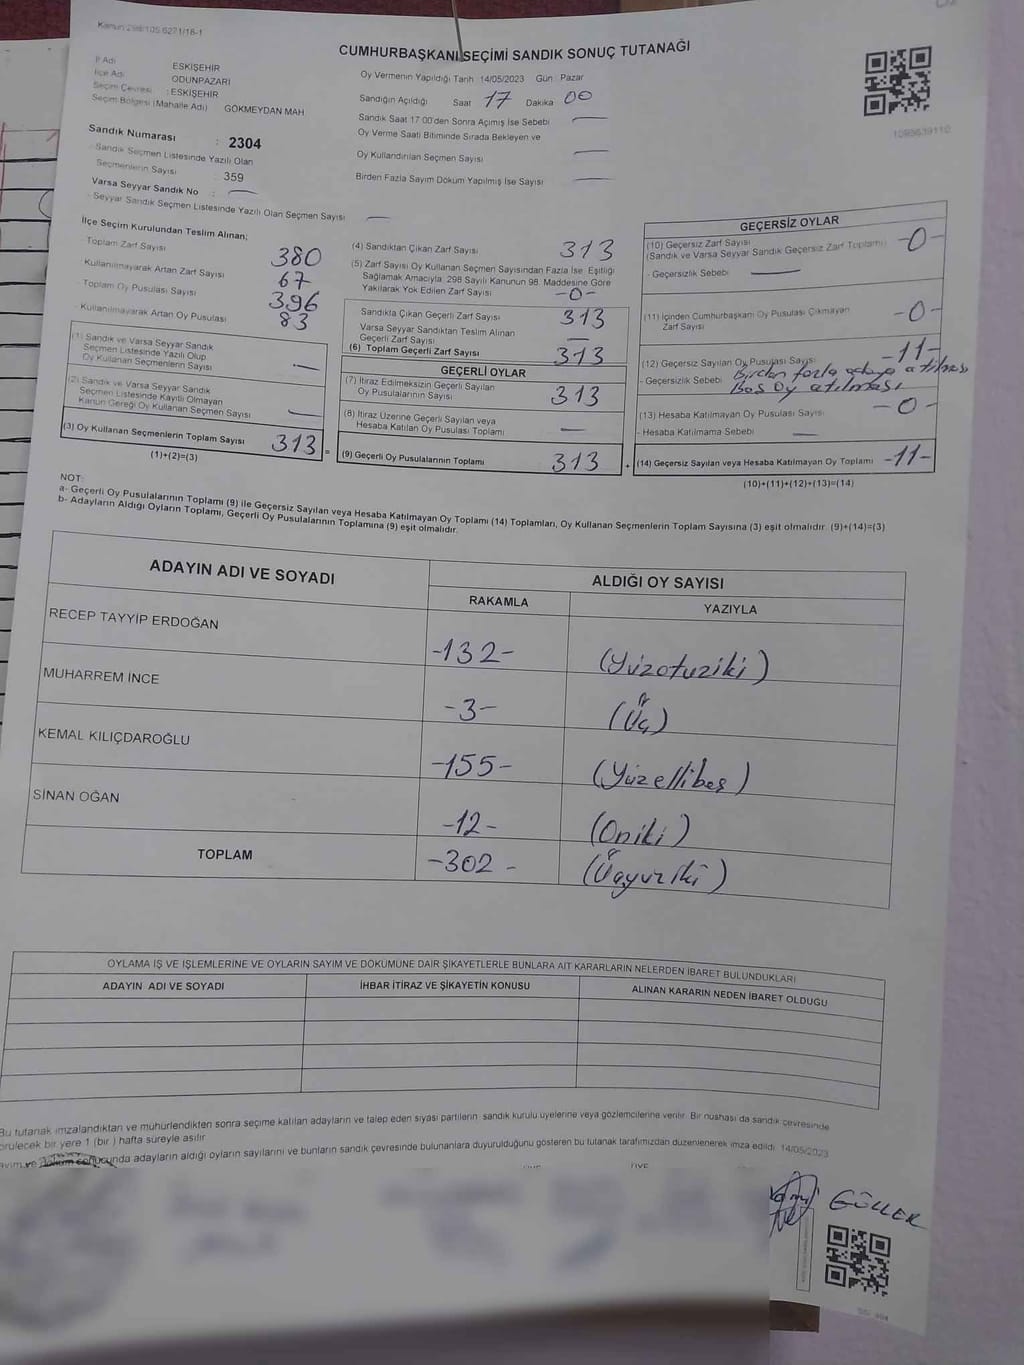 Kanun 298/105 6271/18-1
CUMHURBAŞKANI SEÇİMİ SANDIK SONUÇ TUTANAĞI
İl Adı ESKİŞEHİR
İlçe Adı ODUNPAZARI
Seçim Çevresi : ESKİŞEHİR
Seçim Bölgesi (Mahalle Adı) GÖKMEYDAN MAH
Sandık Numarası : 2304
- Sandık Seçmen Listesinde Yazılı Olan
Seçmenlerin Sayısı 359
Varsa Seyyar Sandık No : —
- Seyyar Sandık Seçmen Listesinde Yazılı Olan Seçmen Sayısı —
Oy Vermenin Yapıldığı Tarih 14/05/2023 Gün : Pazar
Sandığın Açıldığı Saat 17 Dakika 00
Sandık Saat 17:00'den Sonra Açımış İse Sebebi —
Oy Verme Saati Bitiminde Sırada Bekleyen ve
Oy Kullandırılan Seçmen Sayısı —
Birden Fazla Sayım Döküm Yapılmış İse Sayısı —
1095639110
İlçe Seçim Kurulundan Teslim Alınan;
Toplam Zarf Sayısı 380
Kullanılmayarak Artan Zarf Sayısı 67
- Toplam Oy Pusulası Sayısı 396
- Kullanılmayarak Artan Oy Pusulası 83
(1) Sandık ve Varsa Seyyar Sandık
Seçmen Listesinde Yazılı Olup
Oy Kullanan Seçmenlerin Sayısı —
(2) Sandık ve Varsa Seyyar Sandık
Seçmen Listesinde Kayıtlı Olmayan
Kanun Gereği Oy Kullanan Seçmen Sayısı —
(3) Oy Kullanan Seçmenlerin Toplam Sayısı 313 =
(1)+(2)=(3)
(4) Sandıktan Çıkan Zarf Sayısı 313
(5) Zarf Sayısı Oy Kullanan Seçmen Sayısından Fazla İse, Eşitliği
Sağlamak Amacıyla, 298 Sayılı Kanunun 98. Maddesine Göre
Yakılarak Yok Edilen Zarf Sayısı -0-
Sandıkta Çıkan Geçerli Zarf Sayısı 313
Varsa Seyyar Sandıktan Teslim Alınan
Geçerli Zarf Sayısı —
(6) Toplam Geçerli Zarf Sayısı 313
GEÇERLİ OYLAR
(7) İtiraz Edilmeksizin Geçerli Sayılan
Oy Pusulalarının Sayısı 313
(8) İtiraz Üzerine Geçerli Sayılan veya
Hesaba Katılan Oy Pusulası Toplamı —
(9) Geçerli Oy Pusulalarının Toplamı 313 +
GEÇERSİZ OYLAR
(10) Geçersiz Zarf Sayısı
(Sandık ve Varsa Seyyar Sandık Geçersiz Zarf Toplamı) -0-
- Geçersizlik Sebebi —
(11) İçinden Cumhurbaşkanı Oy Pusulası Çıkmayan
Zarf Sayısı -0-
(12) Geçersiz Sayılan Oy Pusulası Sayısı -11-
- Geçersizlik Sebebi Birden fazla adaya atılması
Boş oy atılması
(13) Hesaba Katılmayan Oy Pusulası Sayısı -0-
- Hesaba Katılmama Sebebi —
(14) Geçersiz Sayılan veya Hesaba Katılmayan Oy Toplamı -11-
(10)+(11)+(12)+(13)=(14)
NOT:
a- Geçerli Oy Pusulalarının Toplamı (9) ile Geçersiz Sayılan veya Hesaba Katılmayan Oy Toplamı (14) Toplamları, Oy Kullanan Seçmenlerin Toplam Sayısına (3) eşit olmalıdır. (9)+(14)=(3)
b- Adayların Aldığı Oyların Toplamı, Geçerli Oy Pusulalarının Toplamına (9) eşit olmalıdır.
ADAYIN ADI VE SOYADI ALDIĞI OY SAYISI
RAKAMLA YAZIYLA
RECEP TAYYİP ERDOĞAN -132- (Yüzotuziki)
MUHARREM İNCE -3- (Üç)
KEMAL KILIÇDAROĞLU -155- (Yüzellibeş)
SİNAN OĞAN -12- (Oniki)
TOPLAM -302- (Üçyüziki)
OYLAMA İŞ VE İŞLEMLERİNE VE OYLARIN SAYIM VE DÖKÜMÜNE DAİR ŞİKAYETLERLE BUNLARA AİT KARARLARIN NELERDEN İBARET BULUNDUKLARI
ADAYIN ADI VE SOYADI İHBAR İTİRAZ VE ŞİKAYETİN KONUSU ALINAN KARARIN NEDEN İBARET OLDUĞU
Bu tutanak imzalandıktan ve mühürlendikten sonra seçime katılan adayların ve talep eden siyasi partilerin sandık kurulu üyelerine veya gözlemcilerine verilir. Bir nüshası da sandık çevresinde
görülecek bir yere 1 (bir) hafta süreyle asılır.
Sayım ve döküm sonucunda adayların aldığı oyların sayılarını ve bunların sandık çevresinde bulunanlara duyurulduğunu gösteren bu tutanak tarafımızdan düzenlenerek imza edildi. 14/05/2023
GÜLLER